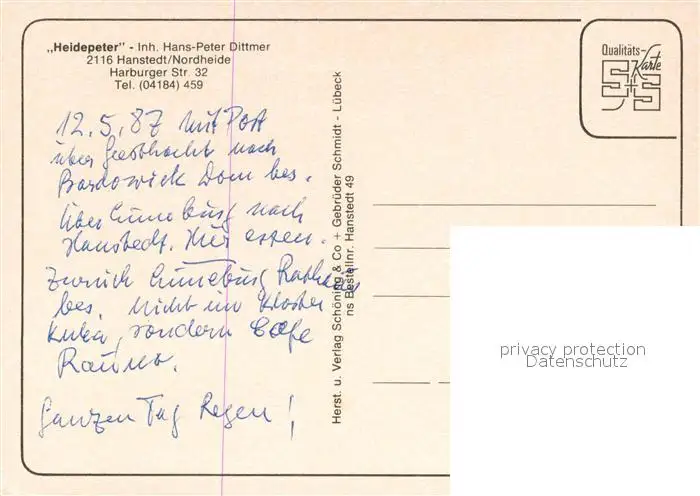 „Heidepeter" - Inh. Hans-Peter Dittmer
2116 Hanstedt/Nordheide
Harburger Str. 32
Tel. (04184) 459
12.5.87 Mit Post
über Geesthacht nach
Bardowick Dom bes.
Über Lüneburg nach
Hanstedt. Hier essen.
Zurück Lüneburg Rathaus
bes. Nicht im Kloster
sondern Cafe
Ganzen Tag Regen!
Herst. u. Verlag Schöning & Co + Gebrüder Schmidt - Lübeck
ns Bestellnr. Hanstedt 49
Qualitäts-
Karte
S+S
privacy protection
Datenschutz